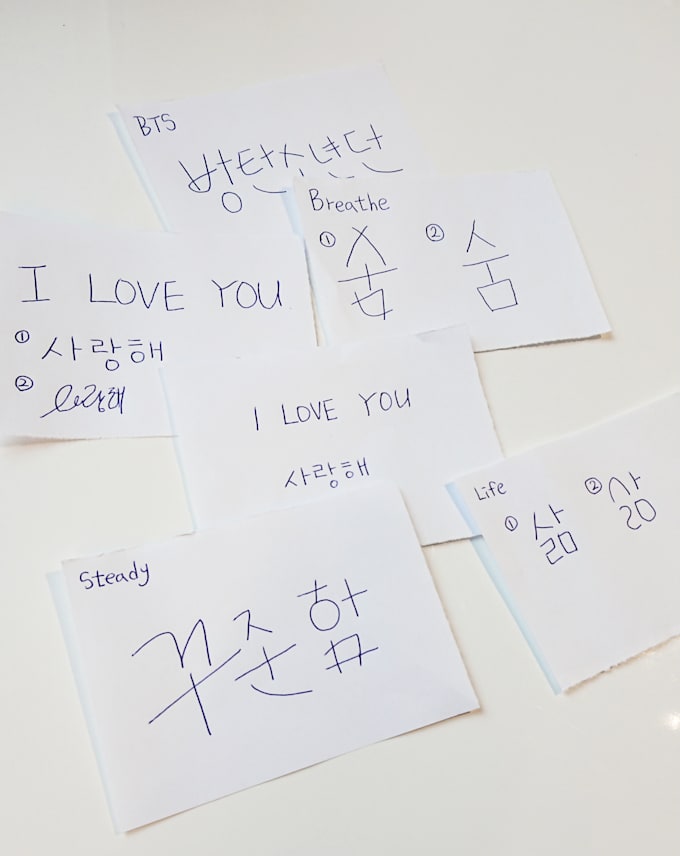 BTS
방탄소년단
Breathe
① 숨 ② 숨
I LOVE YOU
① 사랑해
② 사랑해
I LOVE YOU
사랑해
Life
① 삶 ② 삶
Steady
꾸준함